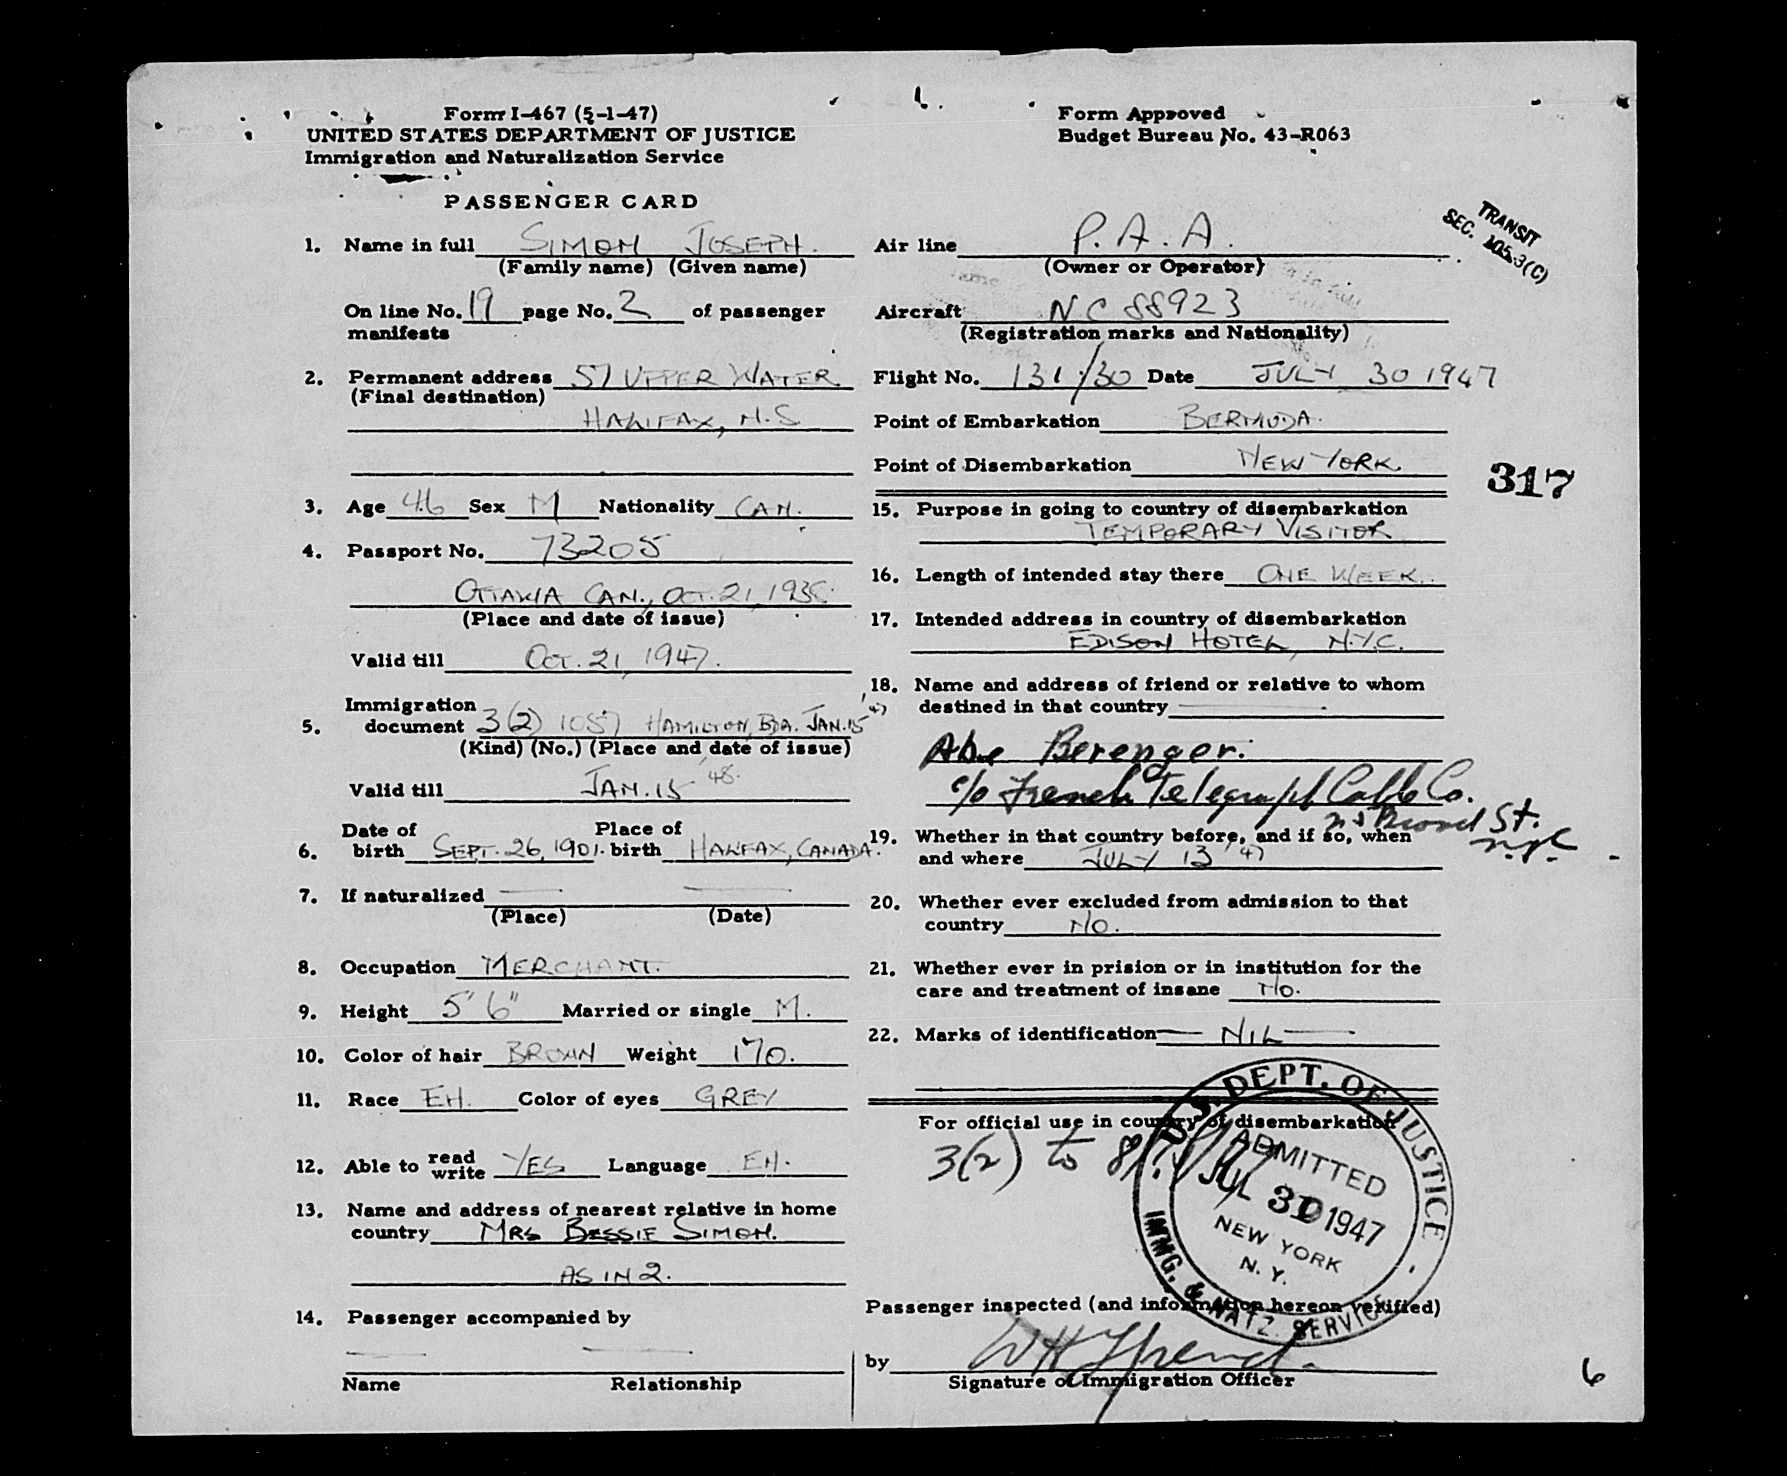 Form I-467 (5-1-47)
UNITED STATES DEPARTMENT OF JUSTICE
Immigration and Naturalization Service
PASSENGER CARD
1. Name in full SIMON JOSEPH.
(Family name) (Given name)
On line No. 19 page No. 2 of passenger
manifests
2. Permanent address 57 UPPER WATER
(Final destination)
HALIFAX, N.S
3. Age 46 Sex M Nationality CAN.
4. Passport No. 73205
OTTAWA CAN., OCT. 21, 193
(Place and date of issue)
Valid till OCT. 21, 1947.
Immigration
5. document 3(2) 1057 HAMILTON, BDA. JAN. 15 '47
(Kind) (No.) (Place and date of issue)
Valid till JAN. 15 '48.
Date of Place of
6. birth SEPT. 26, 1901. birth HALIFAX, CANADA.
7. If naturalized
(Place) (Date)
8. Occupation MERCHANT.
9. Height 5' 6" Married or single M.
10. Color of hair BROWN Weight 170.
11. Race EH. Color of eyes GREY
12. Able to read write YES Language EH.
13. Name and address of nearest relative in home
country MRS BESSIE SIMON.
AS IN 2.
14. Passenger accompanied by
Name Relationship
Form Approved
Budget Bureau No. 43-R063
TRANSIT
SEC. 105.3(C)
Air line P.A.A.
(Owner or Operator)
Aircraft NC 88923
(Registration marks and Nationality)
Flight No. 131/30 Date JULY 30 1947
Point of Embarkation BERMUDA.
Point of Disembarkation NEW YORK.
317
15. Purpose in going to country of disembarkation
TEMPORARY VISITOR
16. Length of intended stay there ONE WEEK.
17. Intended address in country of disembarkation
EDISON HOTEL, N.Y.C.
18. Name and address of friend or relative to whom
destined in that country
Abe Berenger.
c/o French Telegraph Cable Co.
Broad St.
n.y.c
19. Whether in that country before, and if so, when
and where JULY 13 '47
20. Whether ever excluded from admission to that
country NO.
21. Whether ever in prision or in institution for the
care and treatment of insane NO.
22. Marks of identification NIL
For official use in country of disembarkation
3(2) to
U.S. DEPT. OF JUSTICE - IMMG. & NATZ. SERVICE
ADMITTED
JUL 30 1947
NEW YORK
N. Y.
Passenger inspected (and information hereon verified)
by
Signature of Immigration Officer
6